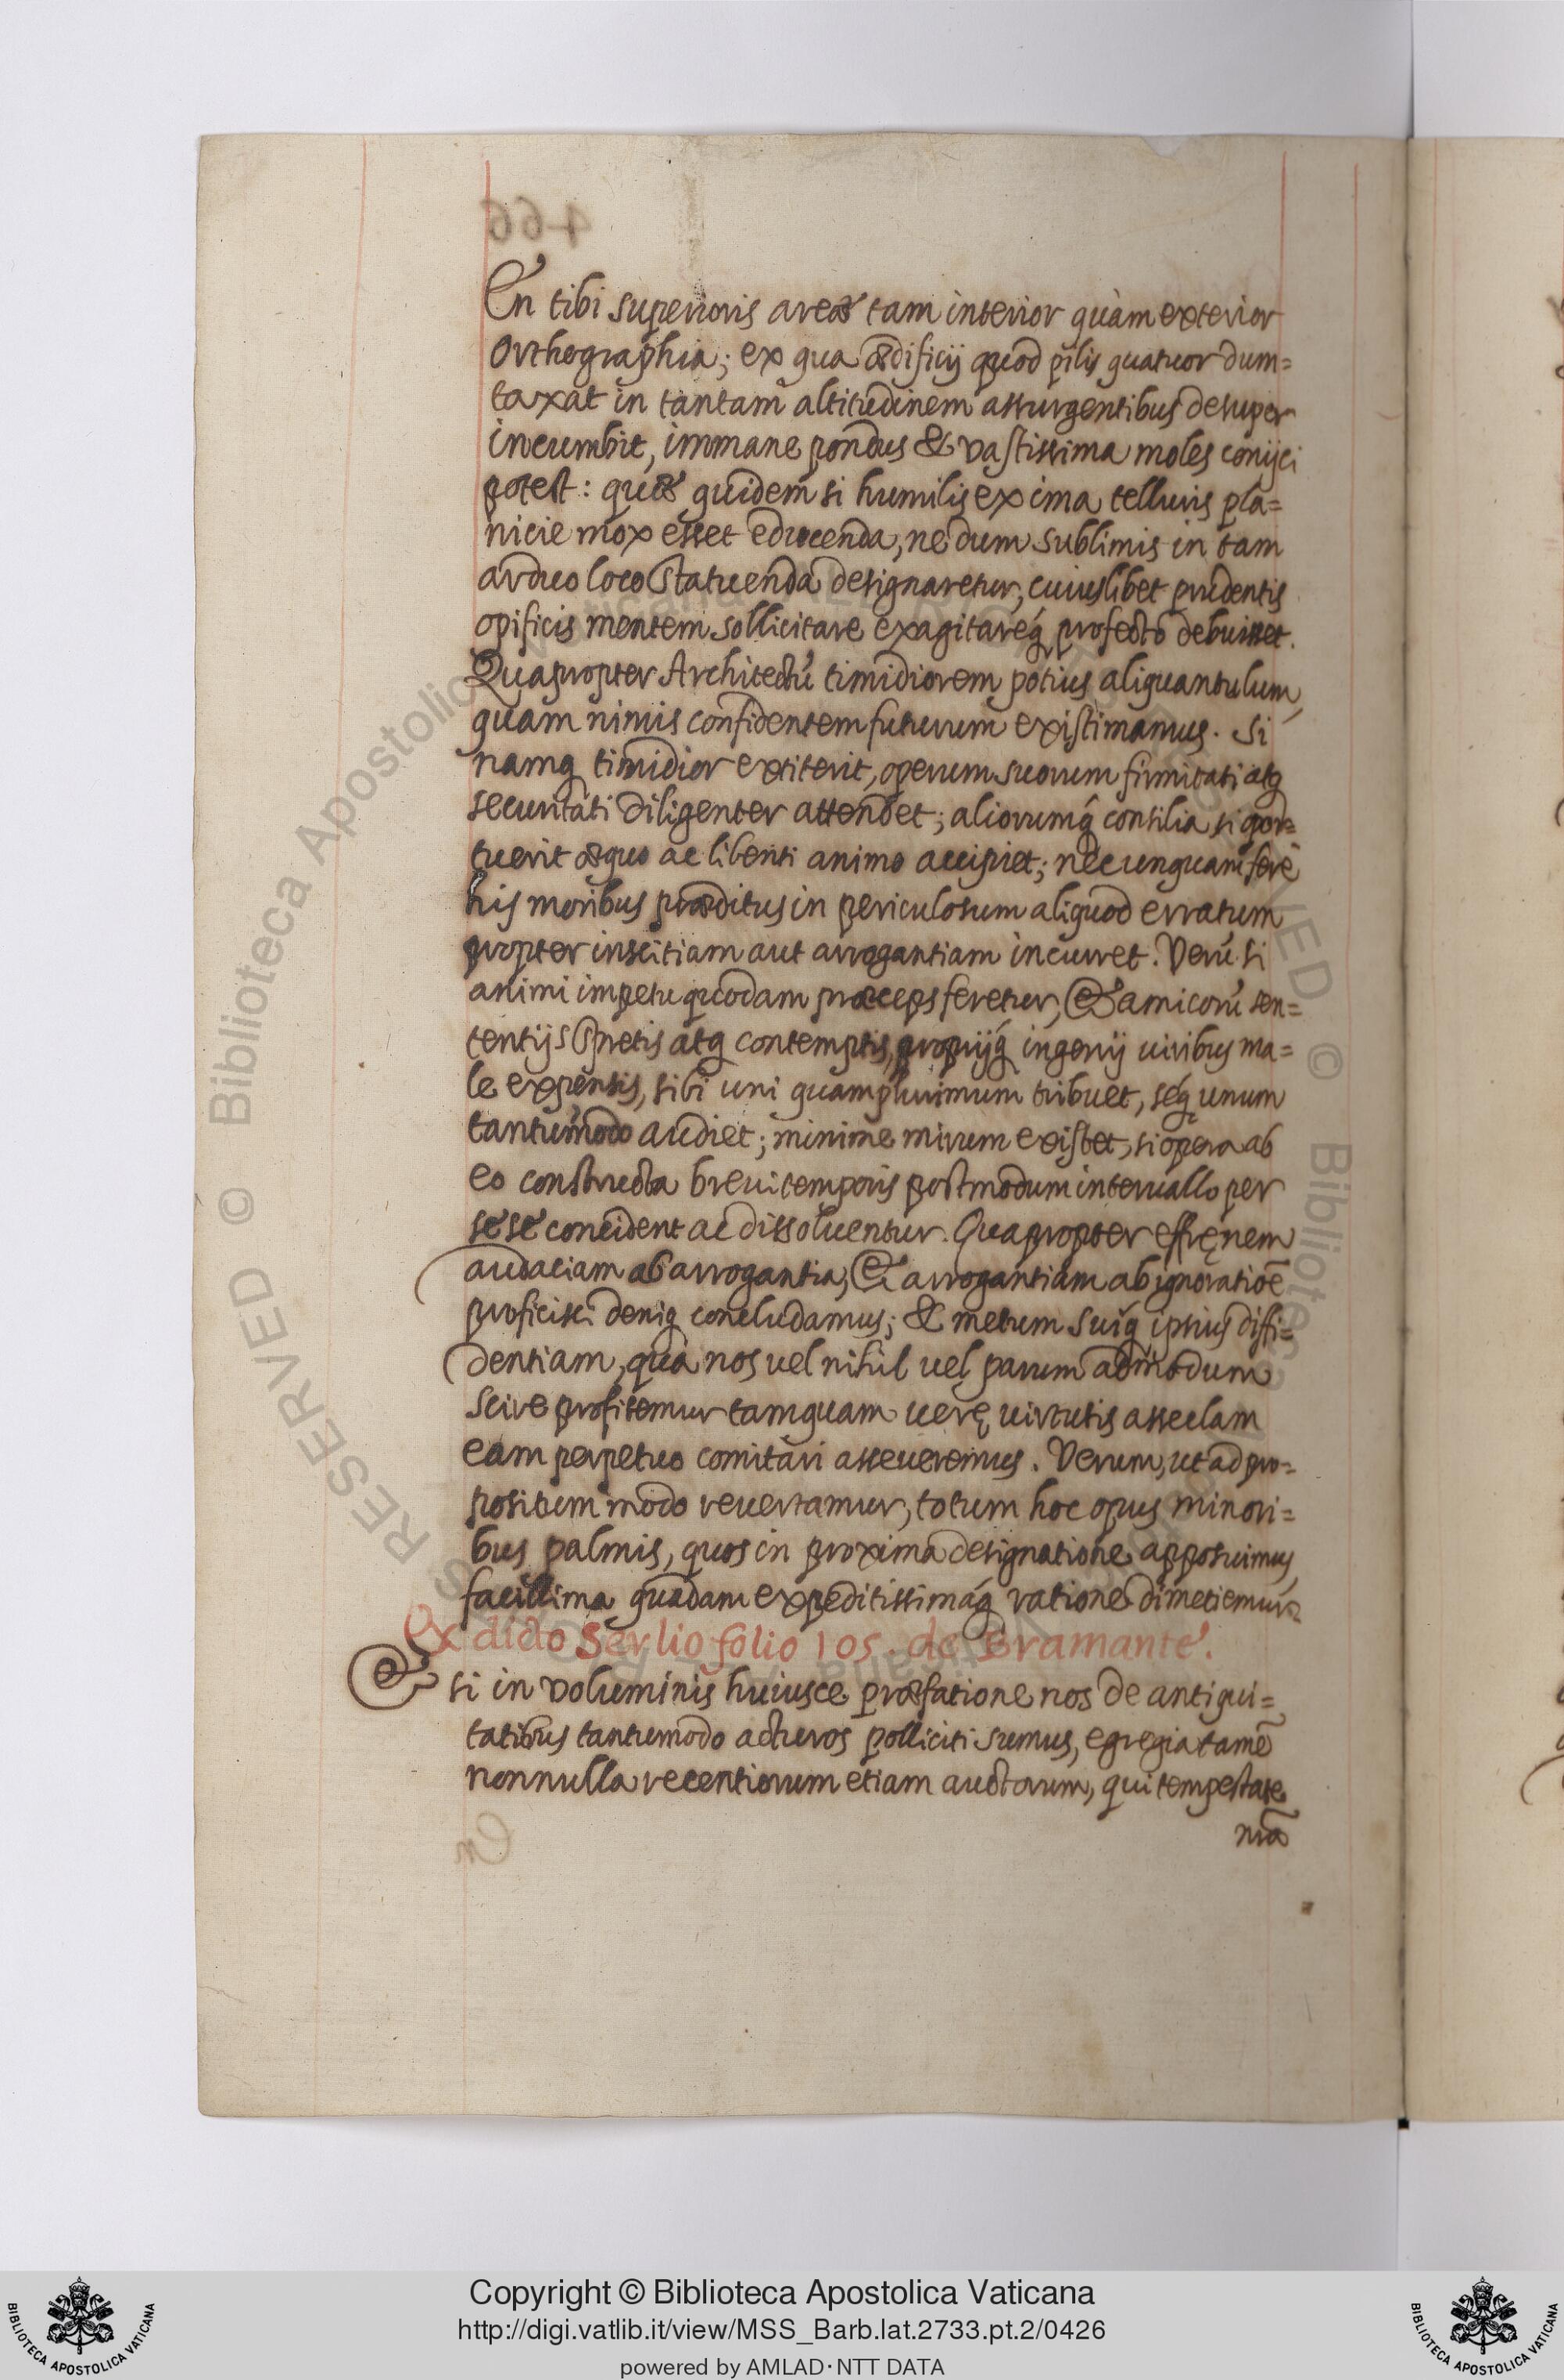 En tibi superioris areæ tam interior quàm exterior
Orthographia; ex qua ædificij quod pilis quatuor dum=
taxat in tantam altitudinem assurgentibus desuper
incumbit, immane pondus & vastissima moles conijci
potest: quæ quidem si humilis ex ima telluris pla=
nicie mox esset educenda, nedum sublimis in tam
arduo loco statuenda designaretur, cuiuslibet prudentis
opificis mentem sollicitare exagitareq́ profectò debuisset.
Quapropter Architectū timidiorem potius aliquantulum,
quam nimis confidentem futurum existimamus. Si
namq timidior extiterit, operum suorum firmitati atq
securitati diligenter attendet; aliorumq́ consilia si opor=
tuerit æquo ac libenti animo accipiet; nec unquam ferè
his moribus præditus in periculosum aliquod erratum
propter inscitiam aut arrogantiam incurret. Verū si
animi impetu quodam præceps feretur, & amicorū sen=
tentijs spretis atq contemptis, proprijq́ ingenij uiribus ma=
le expensis, sibi uni quamplurimum tribuet, seq́ unum
tantūmodo audiet; minime mirum existet, si opera ab
eo constructa breui temporis postmodum interuallo per
sese concident ac dissoluentur. Quapropter effręnem
audaciam ab arrogantia, & arrogantiam ab ignoratiōe
proficisci deniq concludamus; & metum suiq́ ipsius diffi=
dentiam, quà nos uel nihil uel parum admodum
scire profitemur tamquam uerę uirtutis asseclam
eam perpetuo comitari asseueremus. Verum, ut ad pro=
positum modo reuertamur, totum hoc opus minori=
bus palmis, quos in proxima designatione apposuimus,
facillima quadam expeditissimaq́ ratione dimetiemur.
Ex dicto Serlio folio 105. de Bramante.
Etsi in voluminis huiusce præfatione nos de antiqui=
tatibus tantumodo acturos polliciti sumus, egregia tamē
nonnulla recentiorum etiam auctorum, qui tempestate
nr̄a
466
En
Copyright © Biblioteca Apostolica Vaticana
http://digi.vatlib.it/view/MSS_Barb.lat.2733.pt.2/0426
powered by AMLAD·NTT DATA
BIBLIOTECA APOSTOLICA VATICANA
BIBLIOTECA APOSTOLICA VATICANA